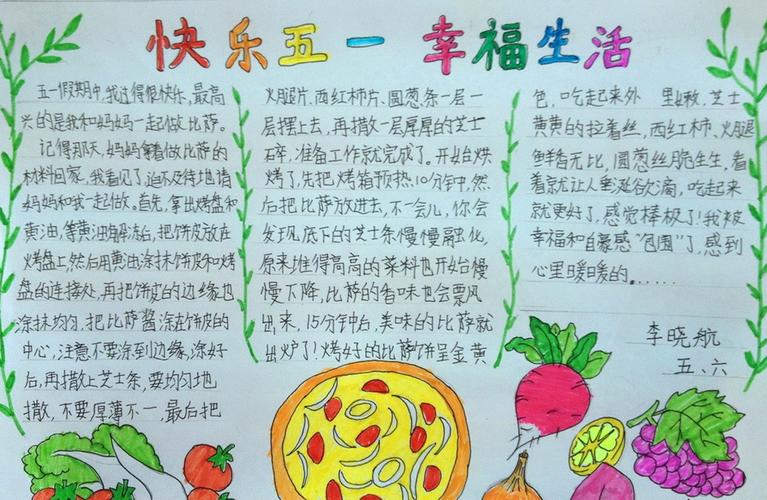 快乐五一 幸福生活
五一假期中,我过得很快乐,最高
兴的是我和妈妈一起做比萨。
记得那天,妈妈拿着做比萨的
材料回家,我看见了迫不及待地请
妈妈和我一起做。首先,拿出烤盘和
黄油,等黄油解冻后,把饼皮放在
烤盘上,然后用黄油涂抹饼皮和烤
盘的连接处,再把饼皮的边缘也
涂抹均匀,把比萨酱涂在饼皮的
中心,注意不要涂到边缘,涂好
后,再撒上芝士条,要均匀地
撒,不要厚薄不一,最后把
火腿片、西红柿片、圆葱条一层一
层摆上去,再撒一层厚厚的芝士
碎,准备工作就完成了。开始烘
烤了,先把烤箱预热10分钟,然
后把比萨放进去,不一会儿,你会
发现底下的芝士条慢慢融化,
原来堆得高高的菜料也开始慢
慢下降,比萨的香味也会飘
出来,15分钟后,美味的比萨就
出炉了!烤好的比萨饼呈金黄
色,吃起来外 里嫩,芝士
黄黄的拉着丝,西红柿、火腿
鲜香无比,圆葱丝脆生生,看
着就让人垂涎欲滴,吃起来
就更好了,感觉棒极了!我被
幸福和自豪感"包围"了,感到
心里暖暖的......
李晓航
五、六